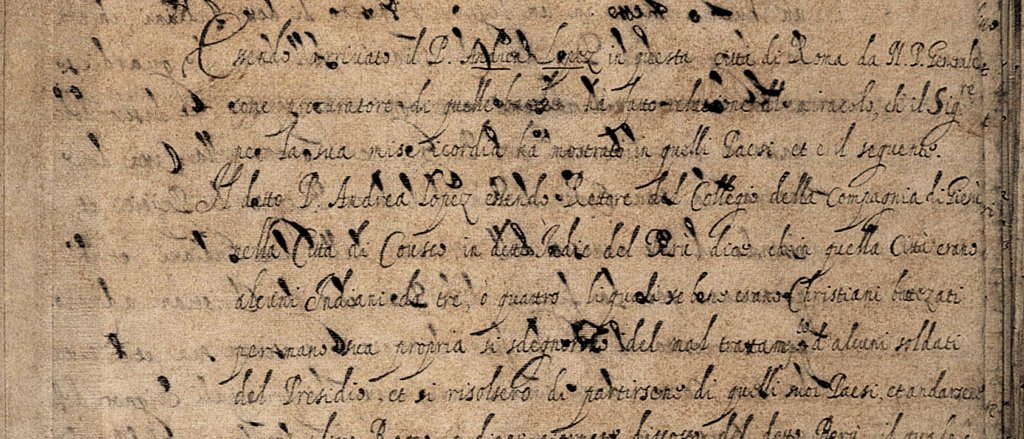 Essendo arrivato il P. Andrea Lopez in questa città di Roma da N. P. Generale
come procuratore di quelle bande hà fatto relatione del miracolo, ch'il Sig.re
per la sua misericordia hà mostrato in quelli Paesi, et è il seguente.
Il detto P. Andrea Lopez essendo Rettore del Collegio della Compagnia di Giesù
nella Città di Cousco in dette Indie del Perù, dice, ch'in quella Città erano
alcuni Indiani da tre, ò quattro, li quali se bene erano Christiani battezati
per mano sua propria si sdegnorno del mal trattam.to d'alcuni soldati
del Presidio, et si risolsero di partirsene di quelli suoi Paesi, et andarsene